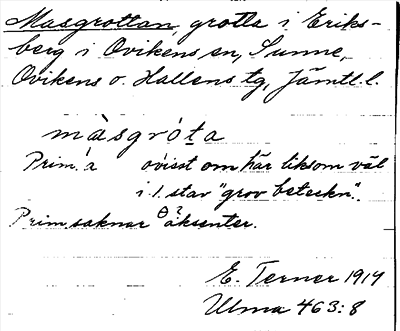 Masgrottan, grotta i Eriks-
berg i Ovikens sn, Sunne,
Ovikens o. Hallens tg, Jämtl. l.
màsgróta
Prim. à ovisst om här liksom väl
i 1. stav "grov beteckn".
Prim. saknar aksenter.
E. Terner 1914
Ulma 463:8